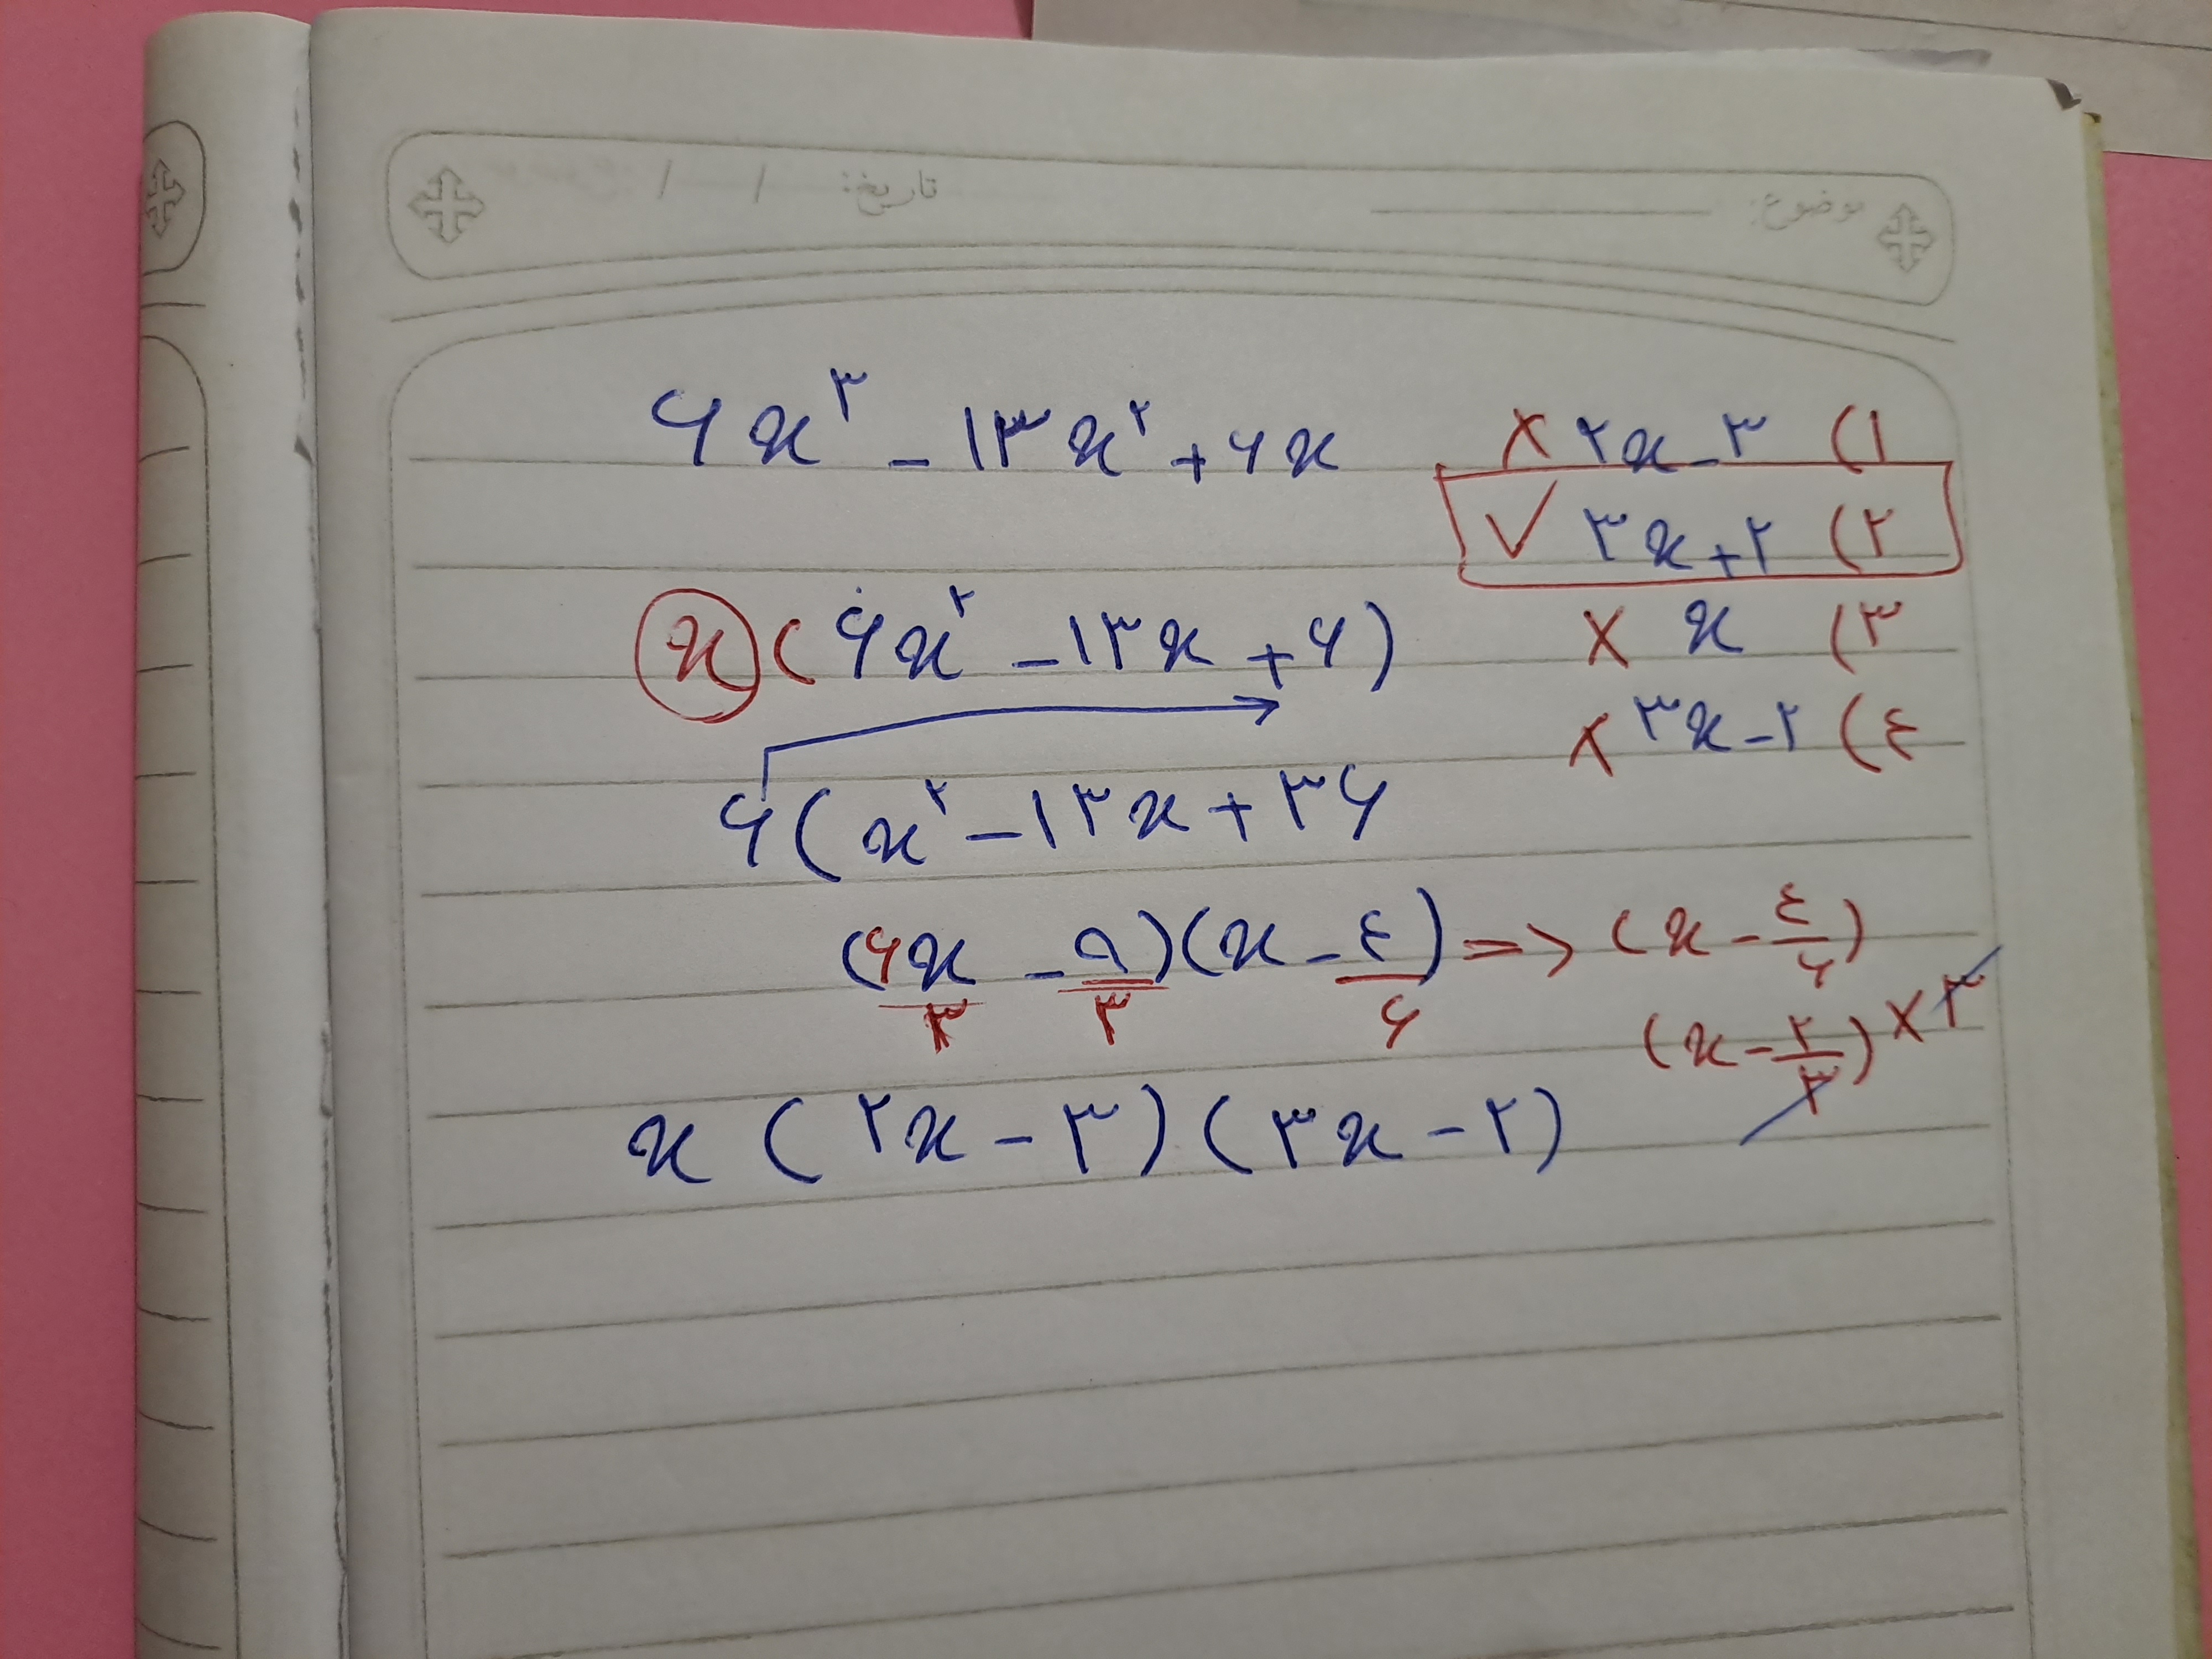 موضوع: تاریخ: / /
۶x^۳ - ۱۳x^۲ + ۶x
۱) ۲x - ۳ ×
۲) ۳x + ۲ ✓
۳) x ×
۴) ۳x - ۲ ×
x(۶x^۲ - ۱۳x + ۶)
۶(x^۲ - ۱۳x + ۳۶
(۶x/۳ - ۹/۳)(x - ۴/۶) => (x - ۴/۶)
(x - ۲/۳) × ۳
x(۲x - ۳)(۳x - ۲)